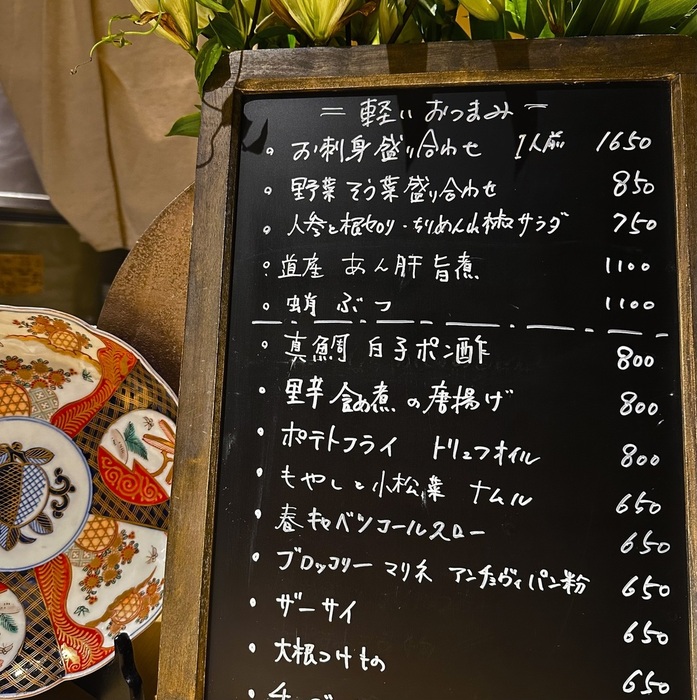 = 軽いおつまみ =
・お刺身盛り合わせ 1人前 1650
・野菜そう菜盛り合わせ 850
・人参と根セロリ・ちりめん山椒サラダ 750
・道産 あん肝旨煮 1100
・蛸ぶつ 1100
・真鯛白子ポン酢 800
・里芋含め煮の唐揚げ 800
・ポテトフライ トリュフオイル 800
・もやしと小松菜 ナムル 650
・春キャベツコールスロー 650
・ブロッコリーマリネ アンチョヴィパン粉 650
・ザーサイ 650
・大根つけもの 650